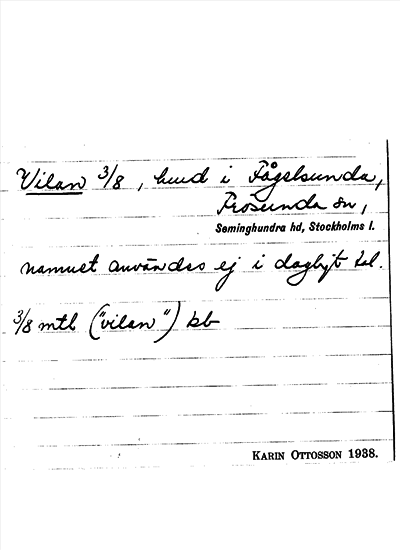 Vilan 3/8, hmd i Fågelsunda,
Frösunda sn,
Seminghundra hd, Stockholms l.
namnet användes ej i dagligt tal.
3/8 mtl ("vilan") kb
KARIN OTTOSSON 1938.